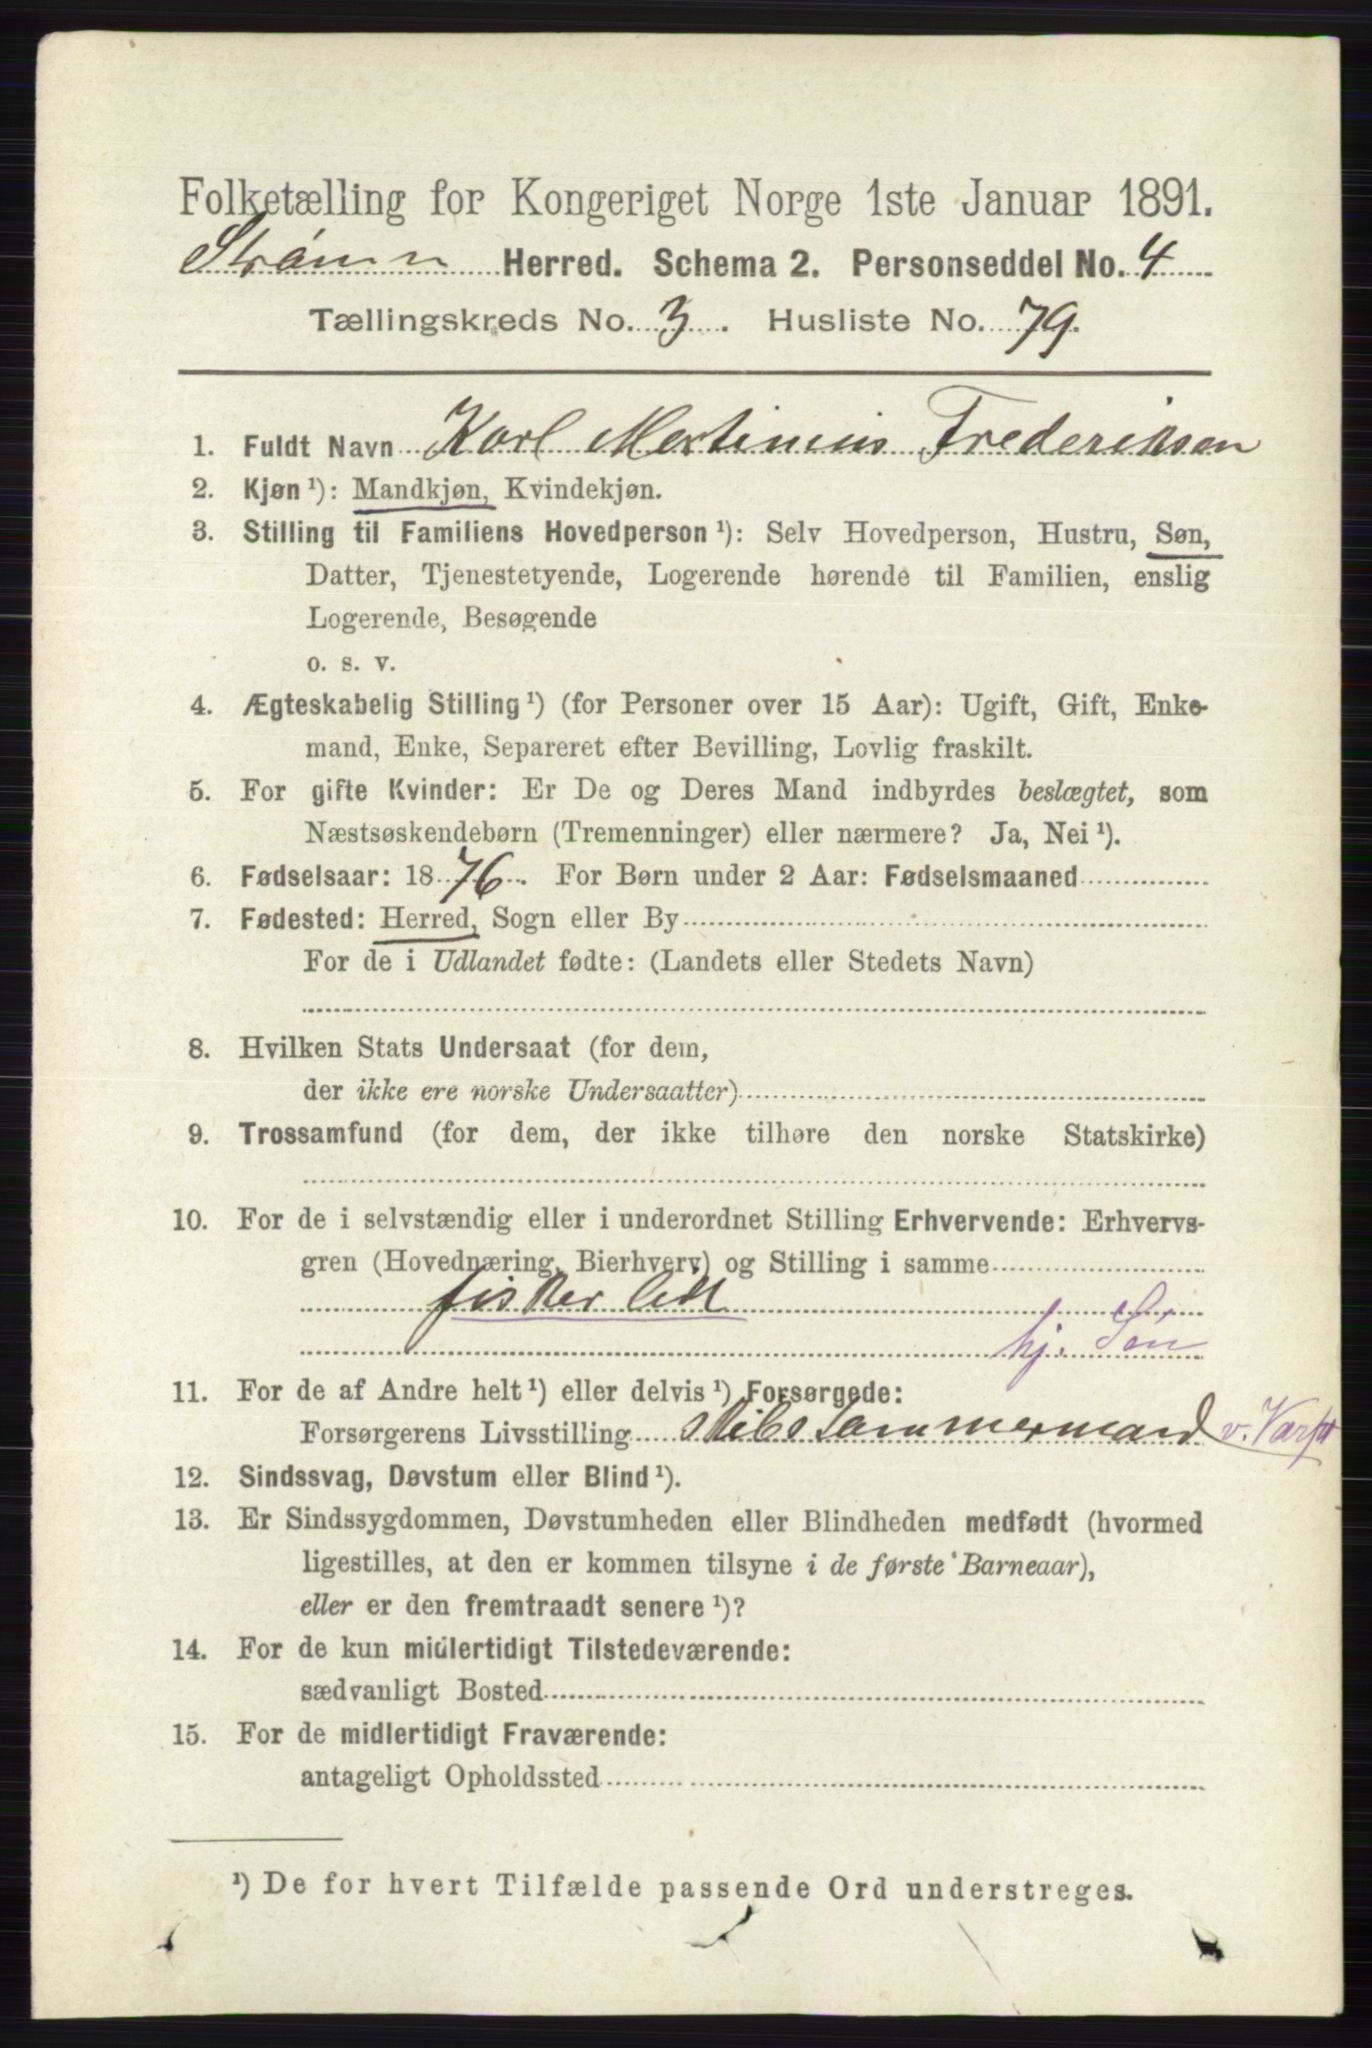 Folketælling for Kongeriget Norge 1ste Januar 1891.
Strømm Herred. Schema 2. Personseddel No. 4
Tællingskreds No. 3. Husliste No. 79.
1. Fuldt Navn Karl Martinius Frederiksen
2. Kjøn ¹): Mandkjøn, Kvindekjøn.
3. Stilling til Familiens Hovedperson ¹): Selv Hovedperson, Hustru, Søn,
Datter, Tjenestetyende, Logerende hørende til Familien, enslig
Logerende, Besøgende
o. s. v.
4. Ægteskabelig Stilling ¹) (for Personer over 15 Aar): Ugift, Gift, Enke-
mand, Enke, Separeret efter Bevilling, Lovlig fraskilt.
5. For gifte Kvinder: Er De og Deres Mand indbyrdes beslægtet, som
Næstsøskendebørn (Tremenninger) eller nærmere? Ja, Nei ¹).
6. Fødselsaar: 1876. For Børn under 2 Aar: Fødselsmaaned
7. Fødested: Herred, Sogn eller By
For de i Udlandet fødte: (Landets eller Stedets Navn)
8. Hvilken Stats Undersaat (for dem,
der ikke ere norske Undersaatter)
9. Trossamfund (for dem, der ikke tilhøre den norske Statskirke)
10. For de i selvstændig eller i underordnet Stilling Erhvervende: Erhvervs-
gren (Hovednæring, Bierhverv) og Stilling i samme
fisker lidt
hj. Søn
11. For de af Andre helt ¹) eller delvis ¹) Forsørgede:
Forsørgerens Livsstilling skibstømmermand v. Værft
12. Sindssvag, Døvstum eller Blind ¹).
13. Er Sindssygdommen, Døvstumheden eller Blindheden medfødt (hvormed
ligestilles, at den er kommen tilsyne i de første Barneaar),
eller er den fremtraadt senere ¹)?
14. For de kun midlertidigt Tilstedeværende:
sædvanligt Bosted
15. For de midlertidigt Fraværende:
antageligt Opholdssted
¹) De for hvert Tilfælde passende Ord understreges.